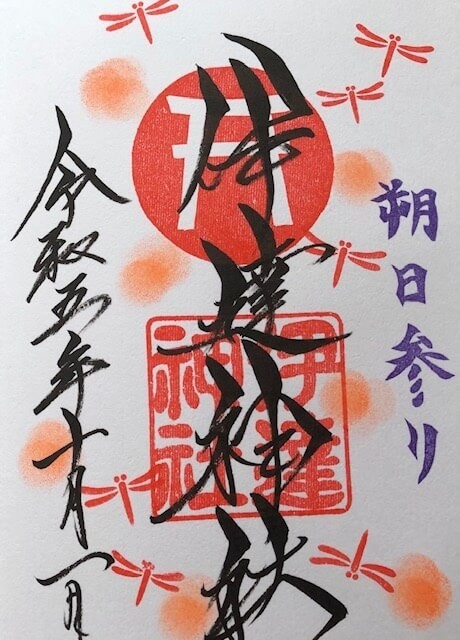 朔日参り
伊達神社
伊達
神社
令和五年十月一日